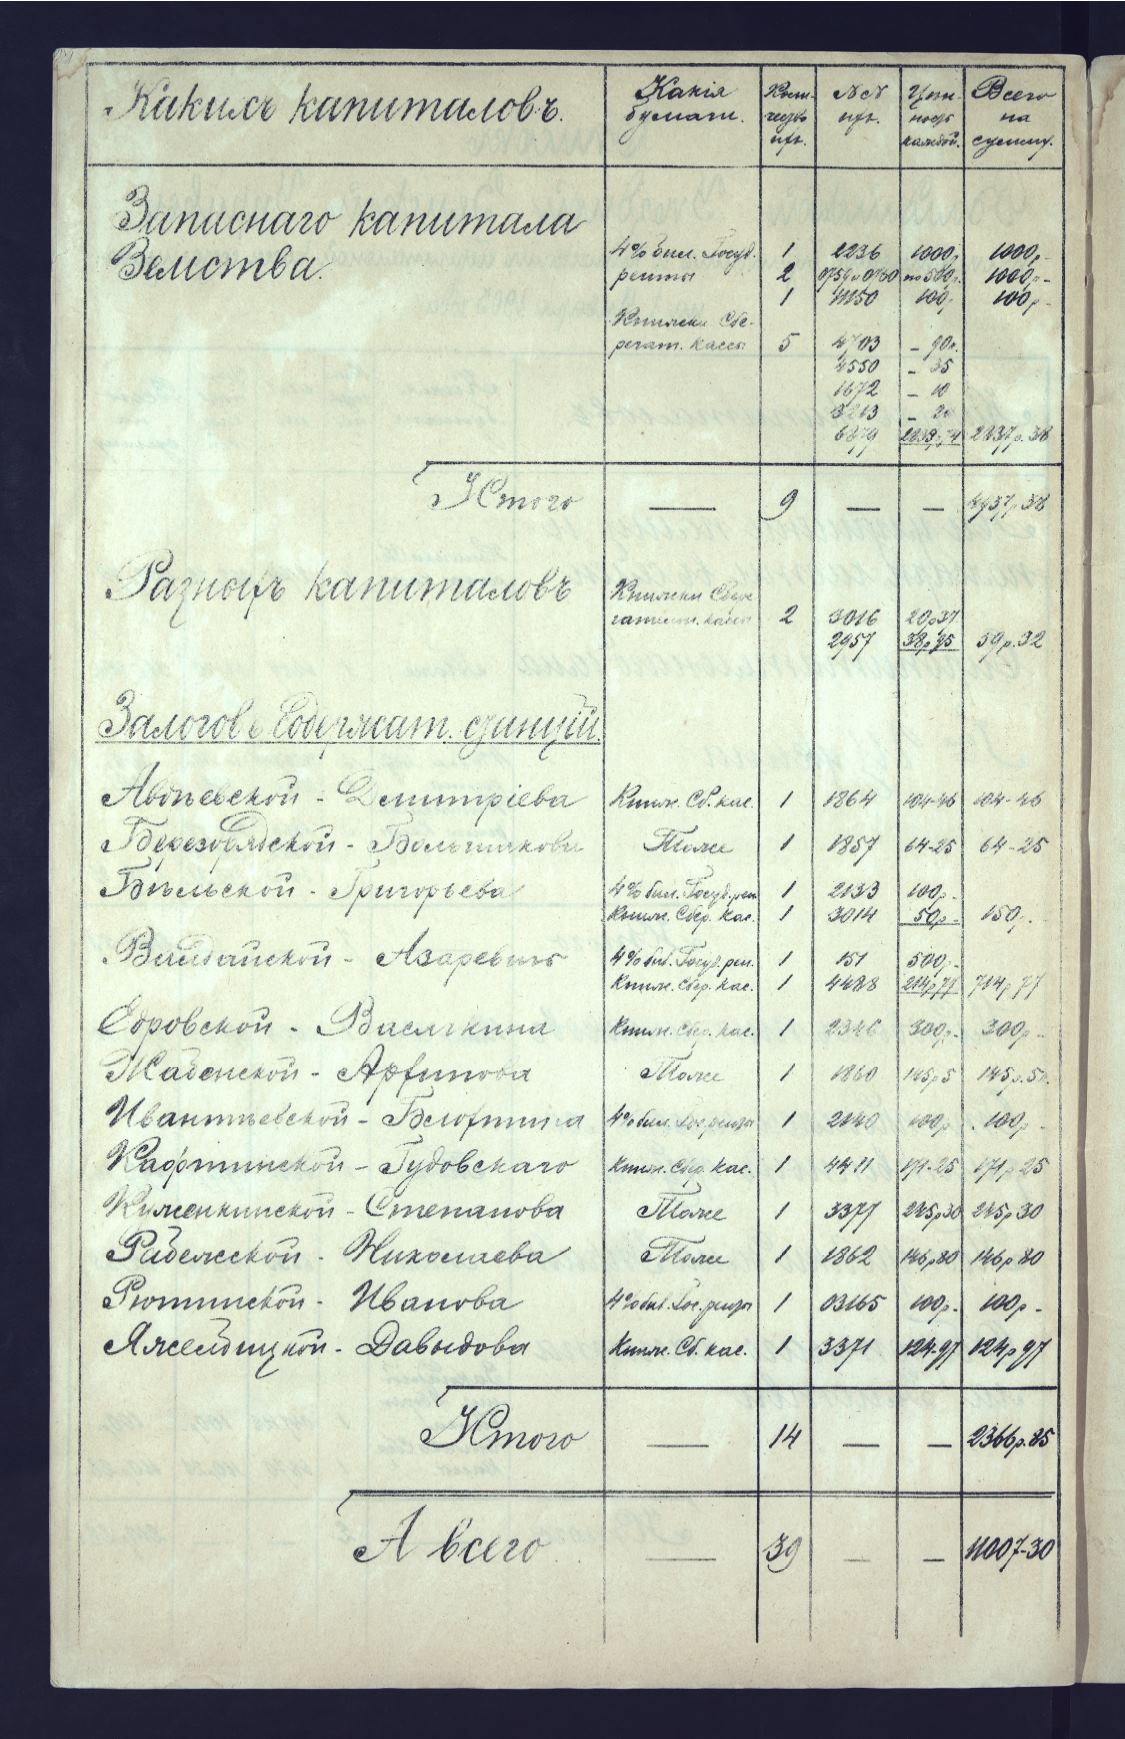 Какихъ капиталовъ. Какія бумаги. Коли-чество ихъ. №№ ихъ. Цѣн-ность каждой. Всего на сумму.
Запаснаго капитала
Земства. 4% бил. Госуд. 1 2236 1000р. 1000р.-
ренты 2 0759 и 0760 по 500р. 1000р.-
1 100р. 100р.-
Книжки Сбе-
регат. кассы 5 4703 - 90к.
4550 - 35
1672 - 10
3213 - 20
6879 2237р.38
Итого — 9 — — 4937р.38
Разныхъ капиталовъ Книжки Сбере-
гательн. кассы 2 3016 20р37
2957 38р95 59р.32
Залоговъ Содержат. станцій.
Авдѣевской - Дмитріева Книж. Сб. кас. 1 1864 104-46 104-46
Березорядской - Большакова Тоже 1 1857 64-25 64-25
Бѣльской - Григорьева 4% бил. Госуд. рен 1 2133 100р.-
Книж. Сбер. кас. 1 3014 50р.- 150р.
Валдайской - Азаревича 4% бил. Госуд. рен. 1 151 500р.-
Книж. Сбер. кас. 1 4488 214р77 714р77
Едровской - Васюкина Книж. Сбер. кас. 1 2346 300р.- 300р.-
Жабенской - Архипова Тоже 1 1860 145р5 145р.5к.
Ивантѣевской - 4% бил. Гос. ренты 1 2140 100р. 100р.-
Кафтинской - Гудовскаго Книж. Сбер. кас. 1 171-25 171р25
Кемкинской - Степанова Тоже 1 3377 245р30 245р30
Рабежской - Николаева Тоже 1 1862 146р80 146р80
Рютинской - Иванова 4% бил. Гос. ренты 1 03165 100р.- 100р-
Яжелбицкой - Давыдова Книж. Сб. кас. 1 3371 124-97 124р97
Итого — 14 — — 2366р.85
А всего — 39 — — 11007-30